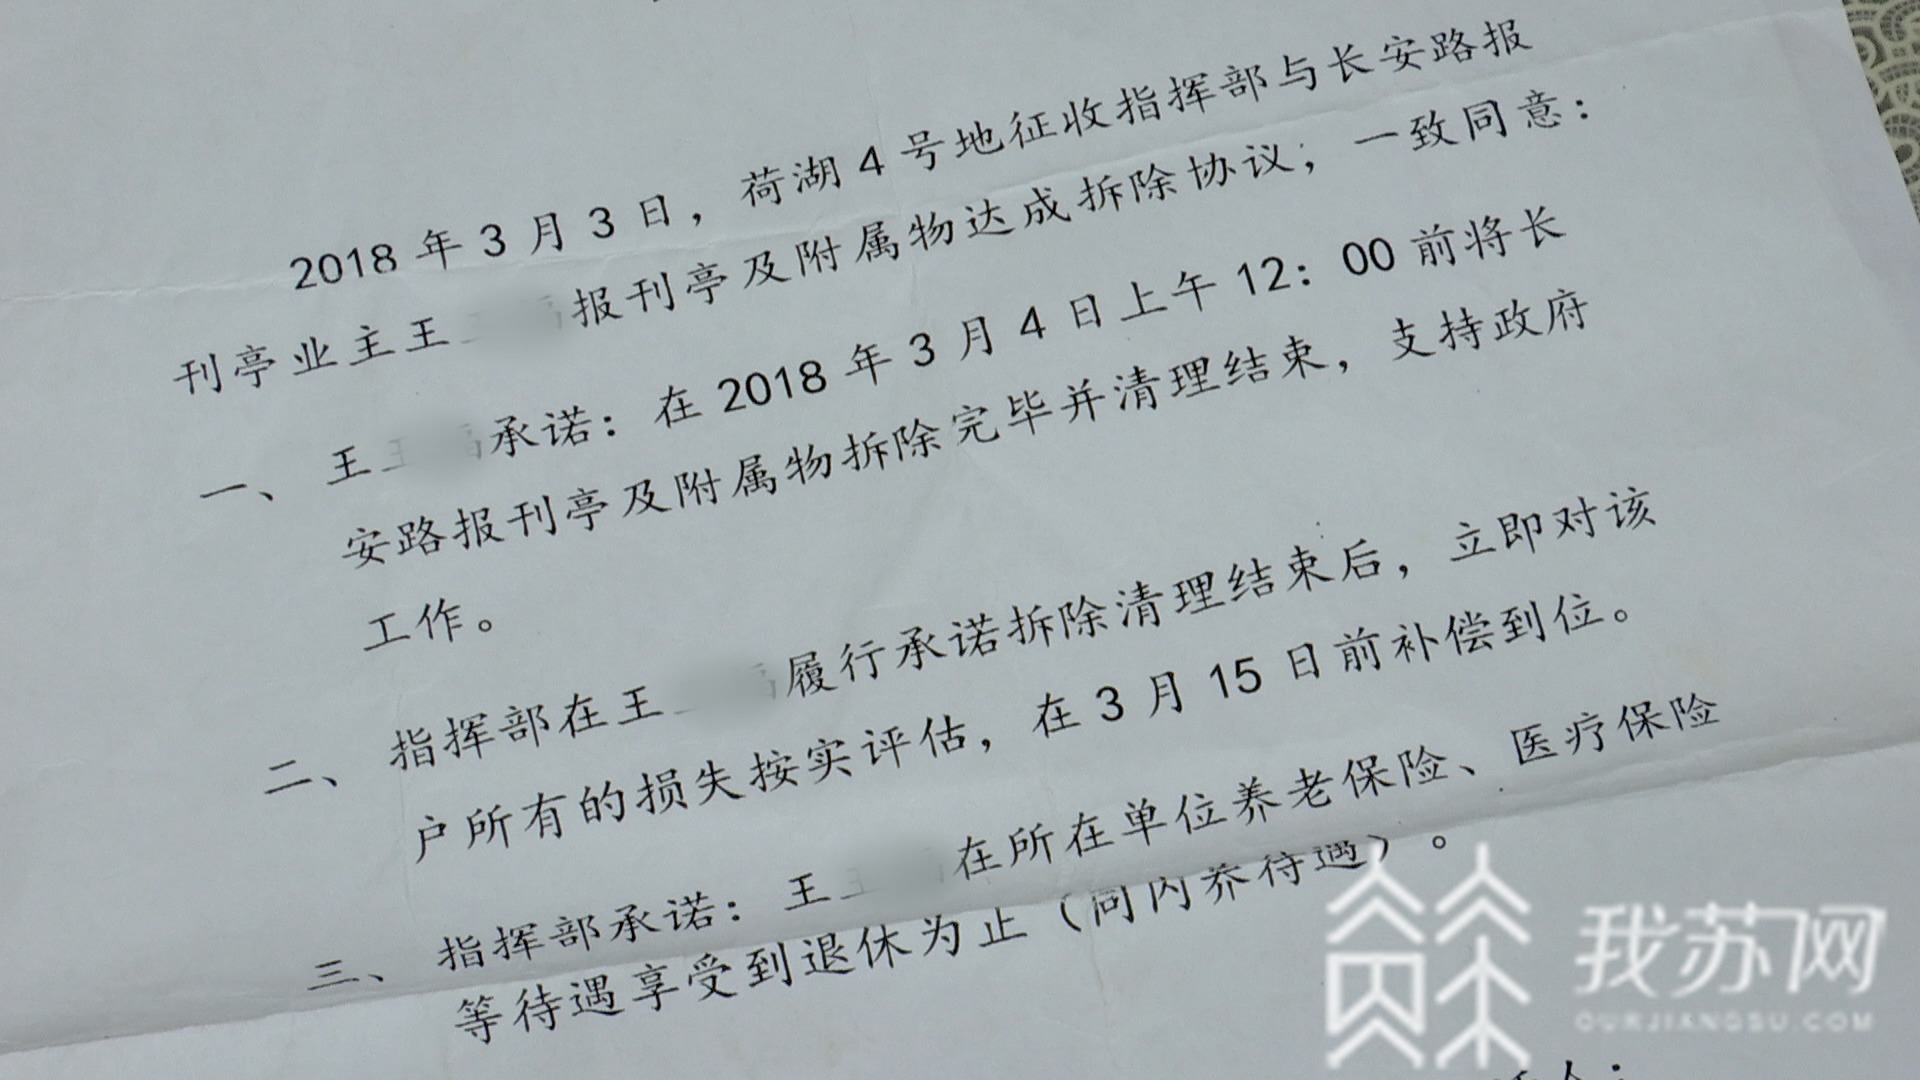 2018年3月3日，荷湖4号地征收指挥部与长安路报
刊亭业主王 报刊亭及附属物达成拆除协议，一致同意：
一、王 承诺：在2018年3月4日上午12：00前将长
安路报刊亭及附属物拆除完毕并清理结束，支持政府
工作。
二、指挥部在王 履行承诺拆除清理结束后，立即对该
户所有的损失按实评估，在3月15日前补偿到位。
三、指挥部承诺：王 在所在单位养老保险、医疗保险
等待遇享受到退休为止（同内养待遇）。
人：
我苏网
OURJIANGSU.COM